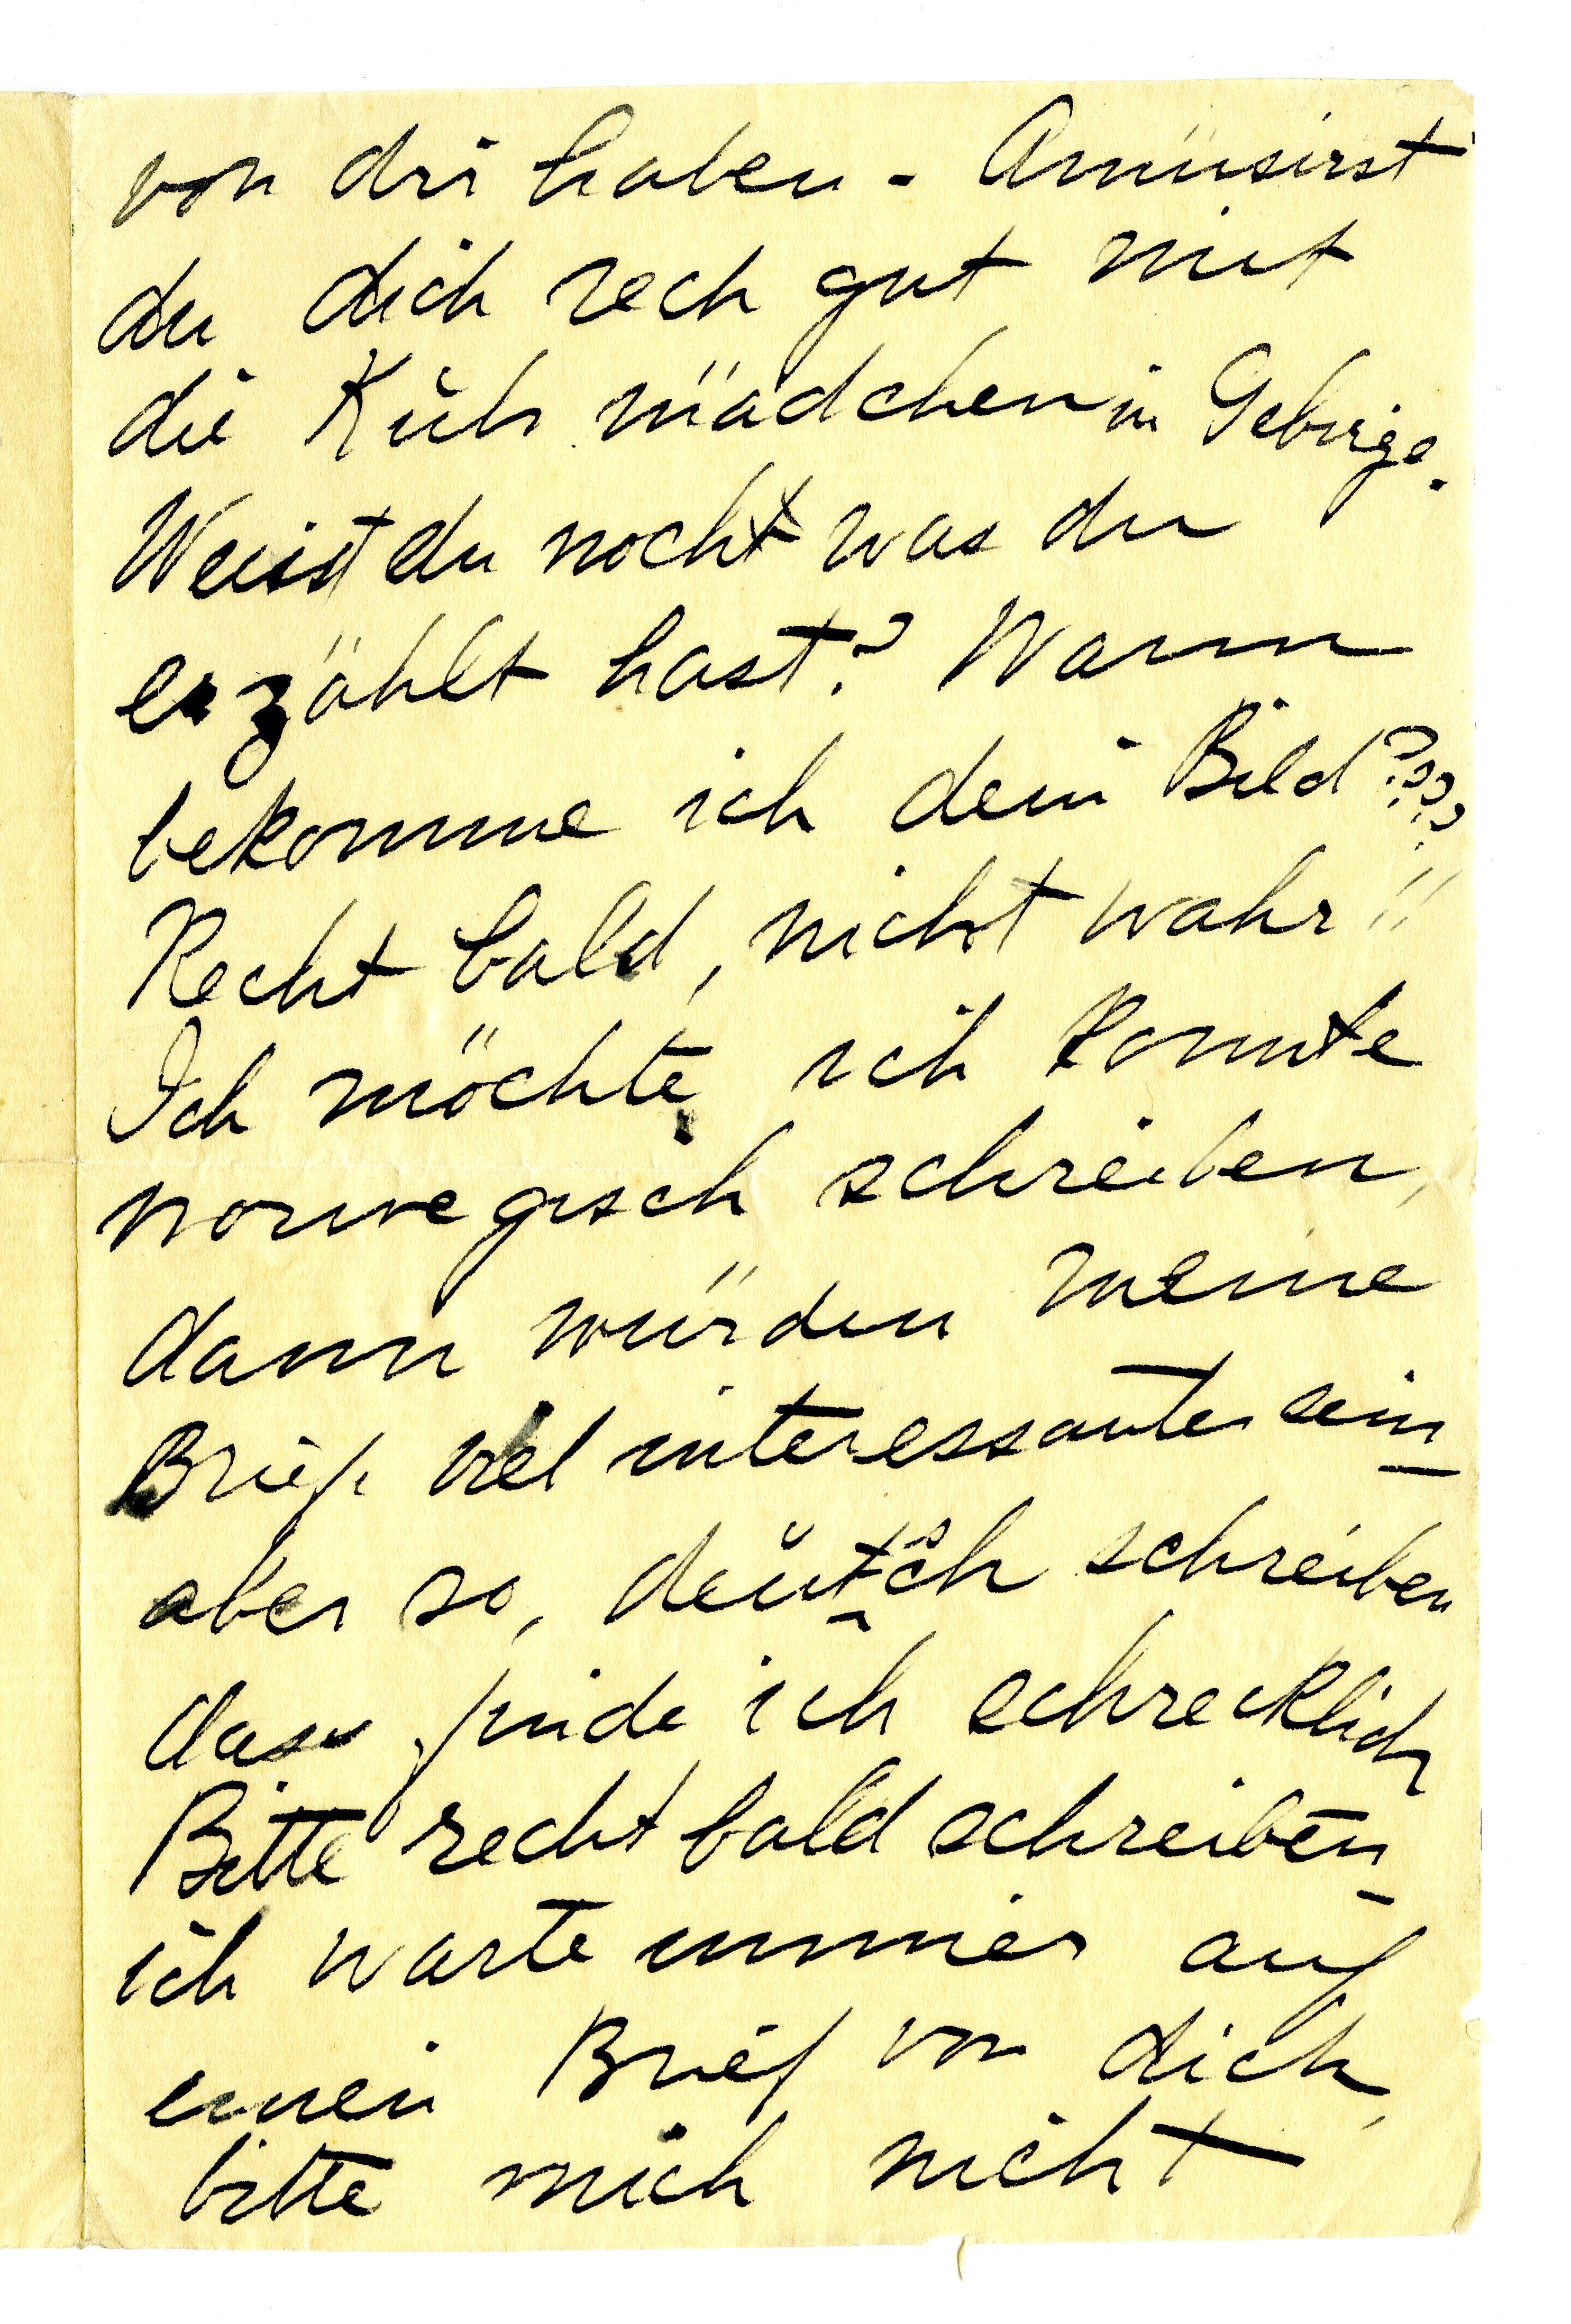 von dir haben - Amüsirst
du dich rech gut mit
die Küh mädchen in Gebirge.
Weist du noch was du
erzählt hast? Wann
bekomme ich dein Bild????
Recht bald, nicht wahr!!
Ich möchte, ich konnte
norwegisch schreiben,
dann würden meine
Brief viel interessanter sein -
aber so, deutsch schreiben
das finde ich schrecklich
Bitte recht bald schreiben -
ich warte immer auf
einen Brief von dich,
bitte mich nicht